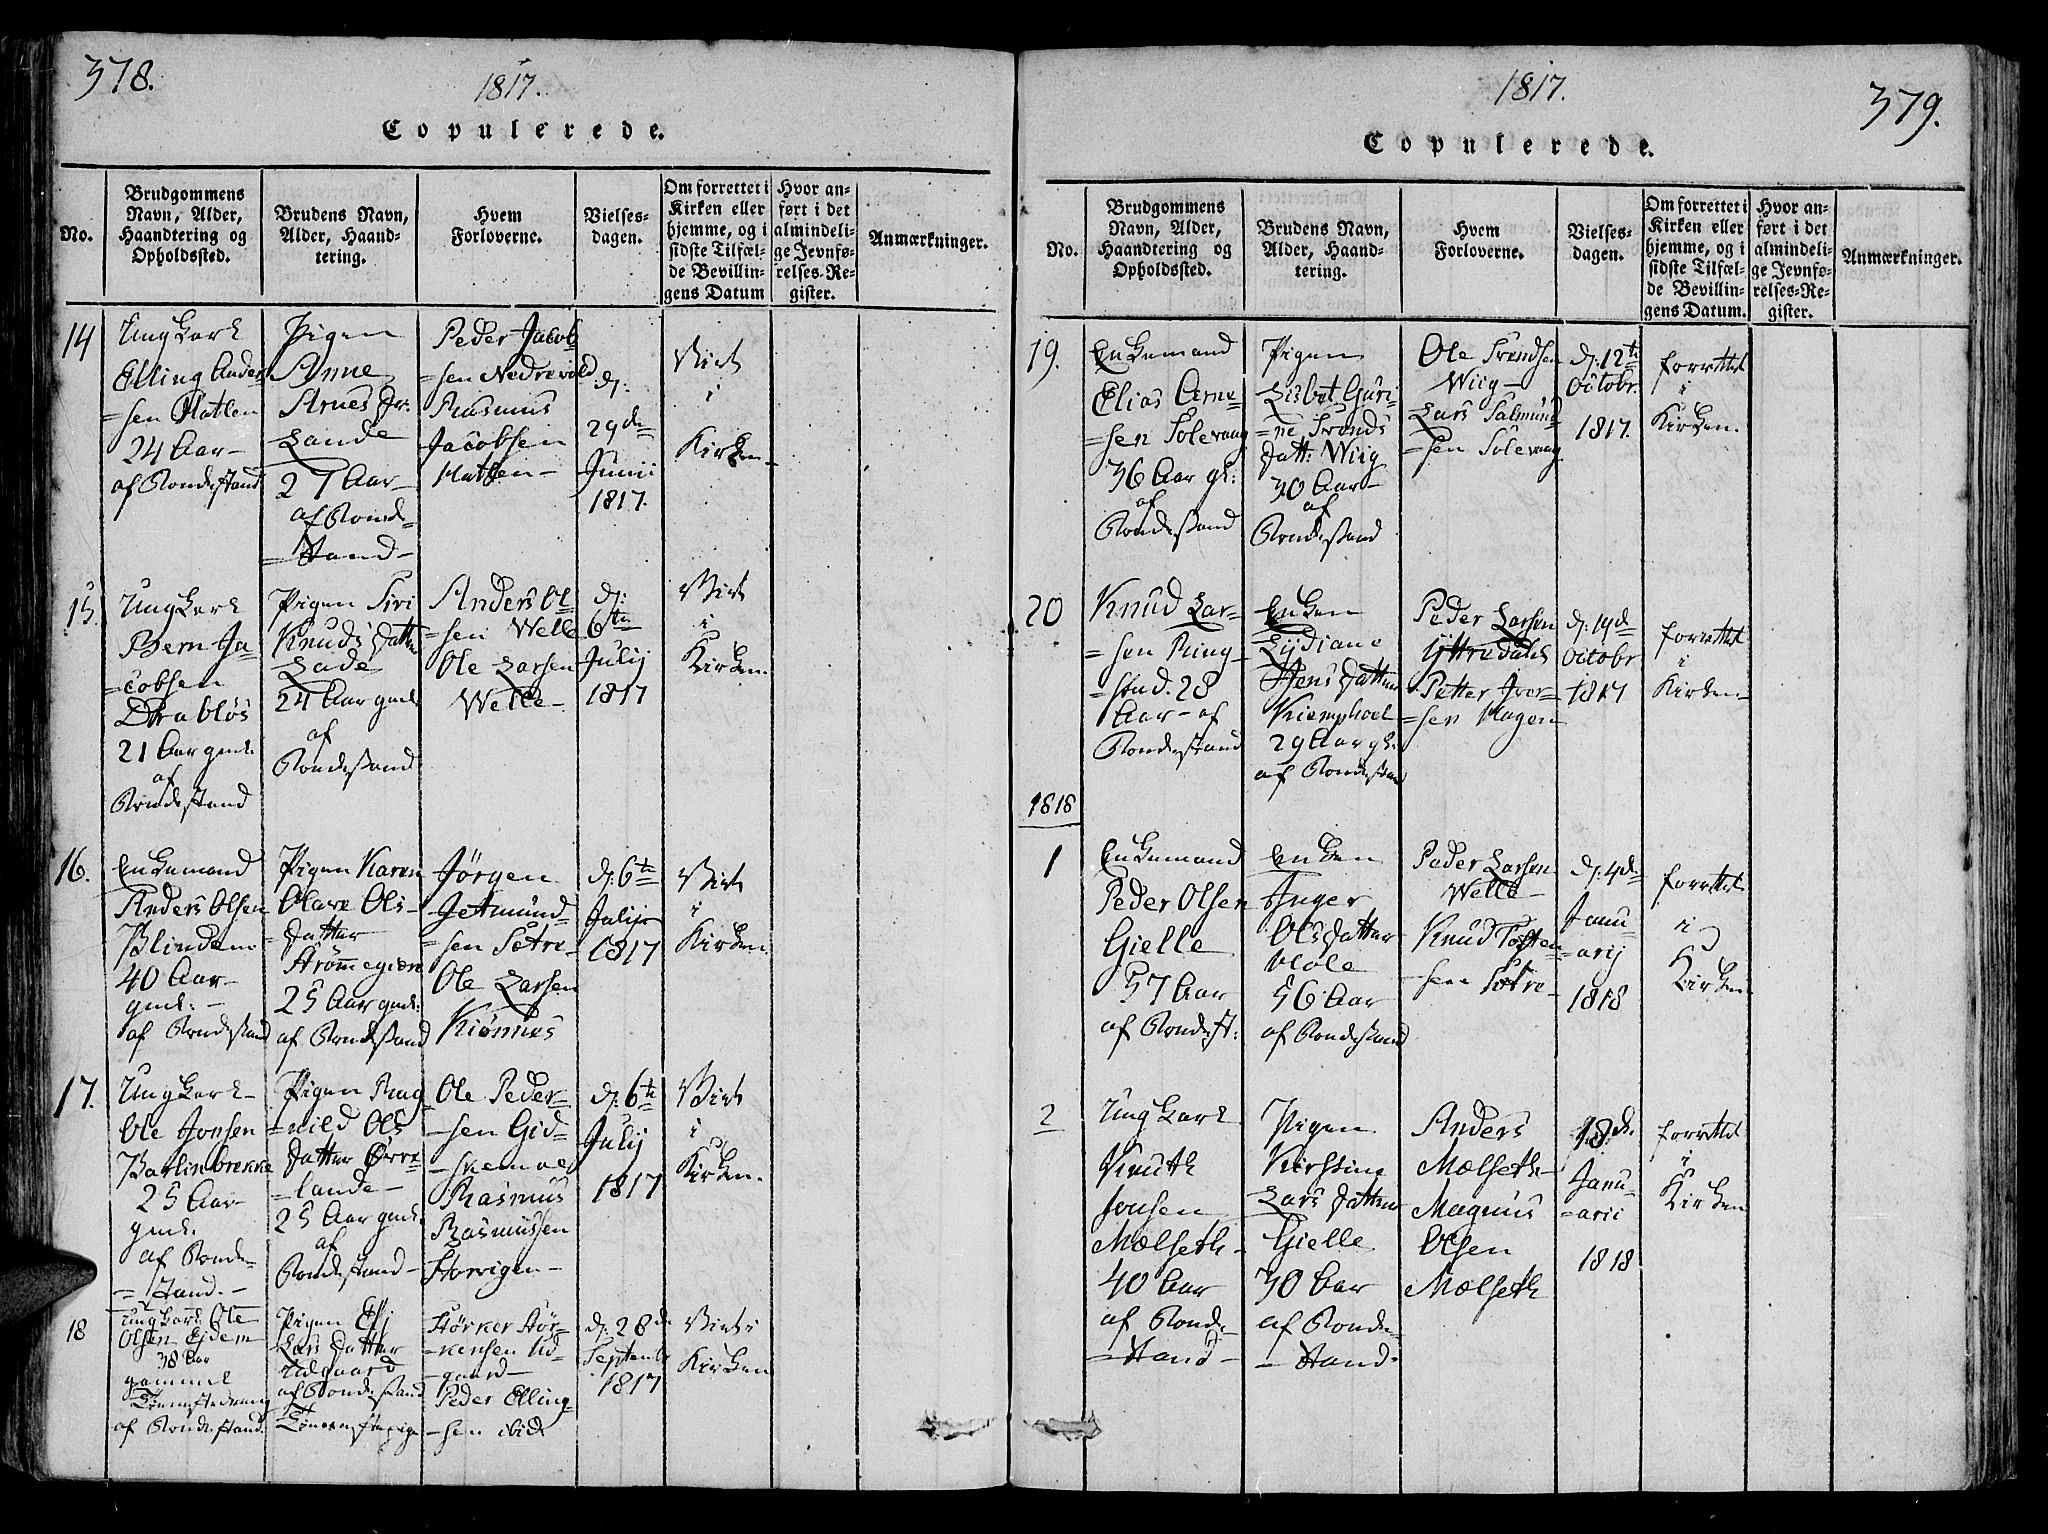 378.
1817.
Copulerede.
No.
Brudgommens
Navn, Alder,
Haandtering og
Opholdssted.
Brudens Navn,
Alder, Haand-
tering.
Hvem
Forloverne.
Vielses-
dagen.
Om forrettet i
Kirken eller
hjemme, og i
sidste Tilfæl-
de Bevillin-
gens Datum
Hvor an-
ført i det
almindeli-
ge Jevnfø-
relses-Re-
gister.
Anmærkninger.
14
Ung Karl
Elling Anders
=sen Hatlen
24 Aar
af Bondestand
Pigen
Anne
Arnes Dr.
Lande
27 Aar
af Bonde
=stand
Peder Jacob
=sen Nedrevold
Rasmus
Jacobsen
Hatlen
d:
29de
Junii
1817.
Viet
i
Kirken
15.
Ung Karl
Bern Ja-
=cobsen
Drabløs
21 Aar gml.
af
Bondestand
Pigen Siri
Knuds Datter
Lade
24 Aar gml.
af
Bondestand
Anders Ol
=sen Welle
Ole Larsen
Welle
d:
6te
Julij
1817
Viet
i
Kirken.
16.
Enkemand
Anders Olsen
Blindem
40 Aar
gml.
af Bondestand
Pigen Karen
Olave Ols-
datter
Strømmegien
25 Aar gml.
af Bondestand
Jørgen
Getmund-
=sen Sætre
Ole Larsen
Kiønnes
d: 6te
Julij
1817
Viet
i
Kirken.
17.
Ung Karl
Ole Jonsen
Barlinbrekke
25 Aar
gml.
af Bonde
=stand.
Pigen Rag
=nild Ols
datter Ørre
=lande
25 Aar gml.
af
Bondestand
Ole Peder
-sen Gid-
-skemoe
Rasmus
Rasmussen
Storvigen
d: 6te
Julij
1817
Viet
i
Kirken.
18
Ung Karl Ole
Olsen Ejdem
38 Aar
gammel
af Bondestand.
Pigen Elj
Lars Datter
Udgaard
af Bondestand
Størker Stør-
-kersen Ud-
gaard
Peder Elling
-sen ibid
d: 28d
Septembr
1817
Viet i
Kirken
1817.
379.
Copulerede.
No.
Brudgommens
Navn, Alder,
Haandtering og
Opholdssted.
Brudens Navn,
Alder, Haand-
tering.
Hvem
Forloverne.
Vielses-
dagen.
Om forrettet i
Kirken eller
hjemme, og i
sidste Tilfæl-
de Bevillin-
gens Datum.
Hvor an-
ført i det
almindeli-
ge Jevnfø-
relses-Re-
gister.
Anmærkninger.
19.
Enkemand
Elias Arne-
=sen Solevaag
36 Aar gl:
af
Bondestand
Pigen
Lisbet Guri-
=ne Tronds
Datt: Wiig
30 Aar
af
Bondestand
Ole Trondsen
Wiig
Lars Salmund
=sen Solevaag
d: 12te
Octobr.
1817.
forrettet
i
Kirken.
20
Knud Lar-
=sen Ring-
=stad. 28
Aar af
Bondestand
Enken
Lydiane
Jens Datter
Kiemphoel
29 Aar gl.
af Bondestand
Peder Larsen
Yttredahls
Petter Iver-
=sen Hagen
d: 19d
Octobr
1817
forrettet
i
Kirken
1818
1
Enkemand
Peder Olsen
Gielle
57 Aar
af Bondest:
Enken
Inger
Olsdatter
Hole
56 Aar
af Bondestand
Peder Larsen
Welle
Knud Tosten
-sen Sætre
d: 4de
Janu
=arij
1818
forrettet
i
Kirken
2
Ung Karl
Knuth
Jonsen
Mælseth
40 Aar
af Bonde
=stand
Pigen
Kirstine
Lars Datter
Gielle
30 Aar
af Bonde
-stand.
Anders
Mælseth
Magnus
Olsen
Mælseth
18d.
Janu-
=arii
1818
forrettet
i
Kirken